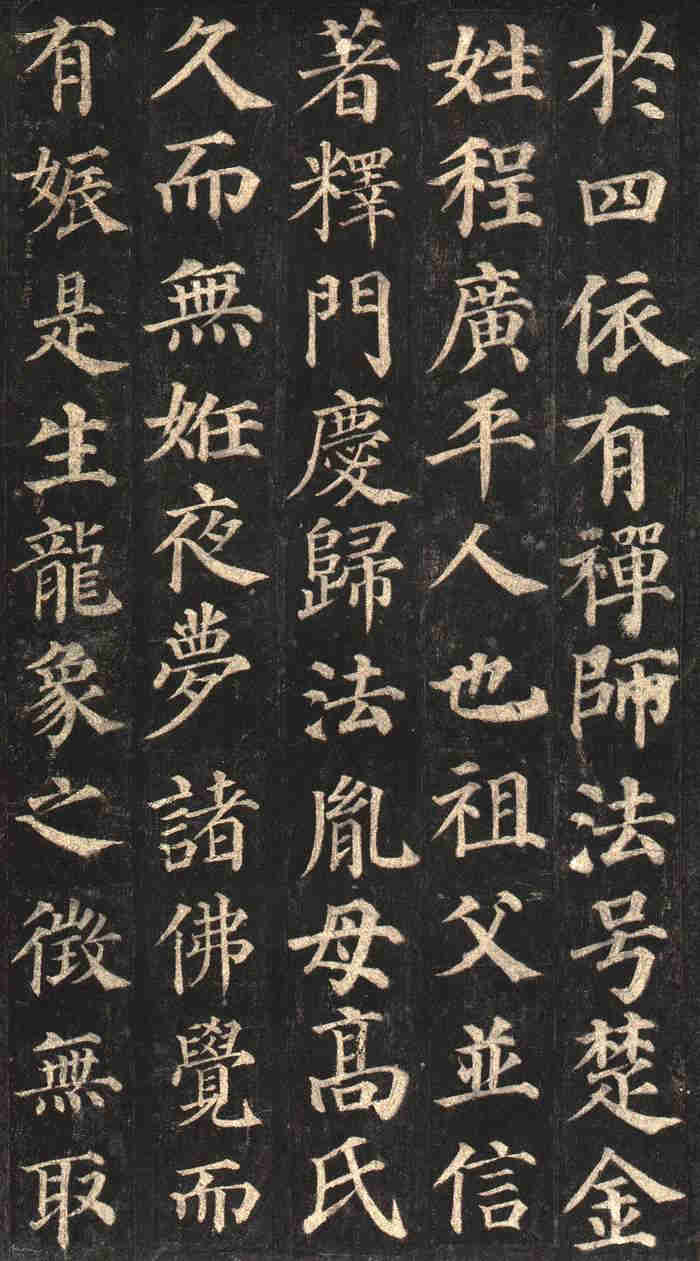 於四依有禪師法号楚金
姓程廣平人也祖父並信
著釋門慶歸法胤母高氏
久而無姙夜夢諸佛覺而
有娠是生龍象之徵無取